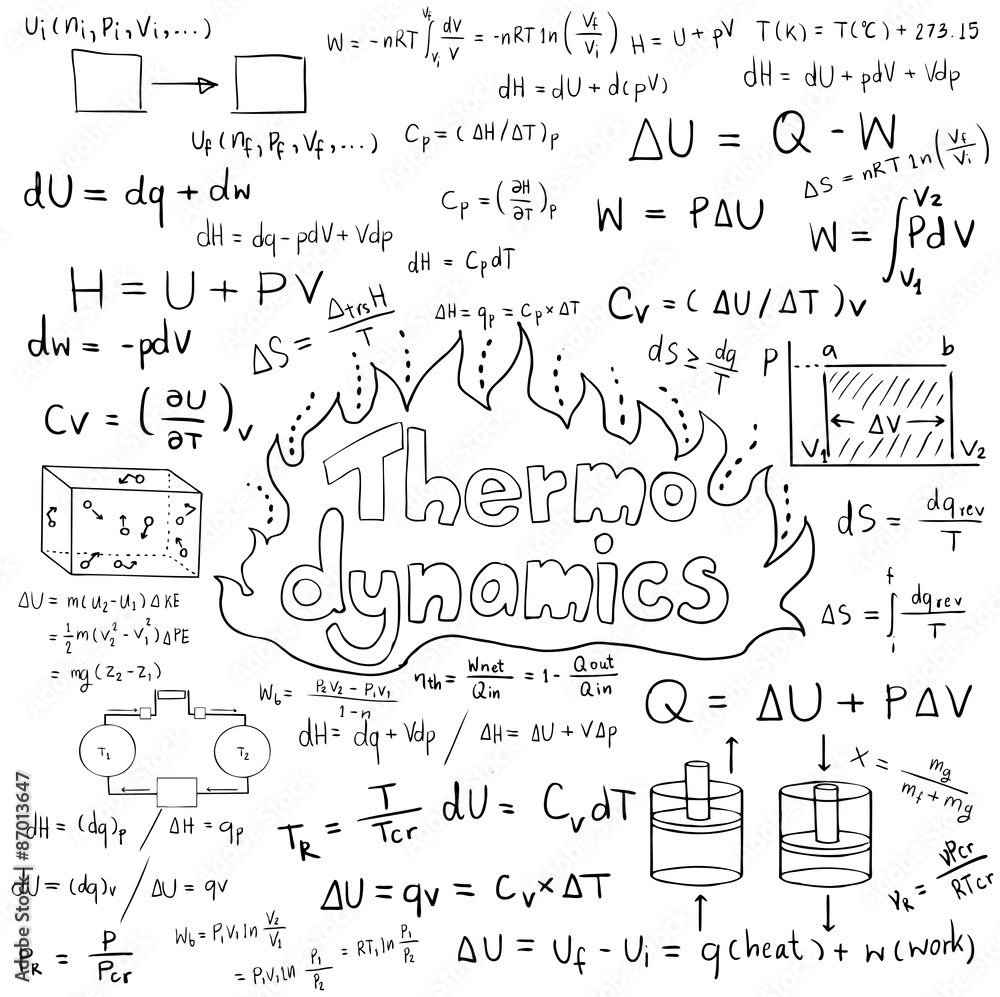 Ui(ni, Pi, Vi, ...)
Uf(nf, Pf, Vf, ...)
W = -nRT ∫Vi^Vf dV/V = -nRT ln(Vf/Vi)
H = U + pV
T(K) = T(°C) + 273.15
dH = dU + d(pV)
dH = dU + pdV + Vdp
Cp = (ΔH/ΔT)p
ΔU = Q - W
ΔS = nRT ln(Vf/Vi)
dU = dq + dw
Cp = (∂H/∂T)p
W = PΔU
W = ∫V1^V2 PdV
dH = dq - pdV + Vdp
dH = CpdT
H = U + PV
ΔS = ΔtrsH/T
ΔH = qp = Cp×ΔT
Cv = (ΔU/ΔT)v
dw = -pdV
dS ≥ dq/T
P a b
ΔV
V1 V2
Cv = (∂U/∂T)v
Thermo
dynamics
dS = dqrev/T
ΔS = ∫i^f dqrev/T
ΔU = m(u2-u1)ΔKE
= 1/2m(v2²-v1²)ΔPE
= mg(z2-z1)
T1 T2
Wb = P2V2 - P1V1/1-n
ηth = Wnet/Qin = 1 - Qout/Qin
Q = ΔU + PΔV
dH = dq + Vdp / ΔH = ΔU + VΔp
X = mg/mf+mg
TR = T/Tcr
dU = CvdT
dH = (dq)p / ΔH = qp
dU = (dq)v / ΔU = qv
ΔU = qv = Cv×ΔT
vR = vPcr/RTcr
PR = P/Pcr
Wb = P1V1 ln V2/V1
= P1V1 ln P1/P2 = RT1 ln P1/P2
ΔU = Uf - Ui = q(heat) + w(work)
Adobe Stock | #87013647